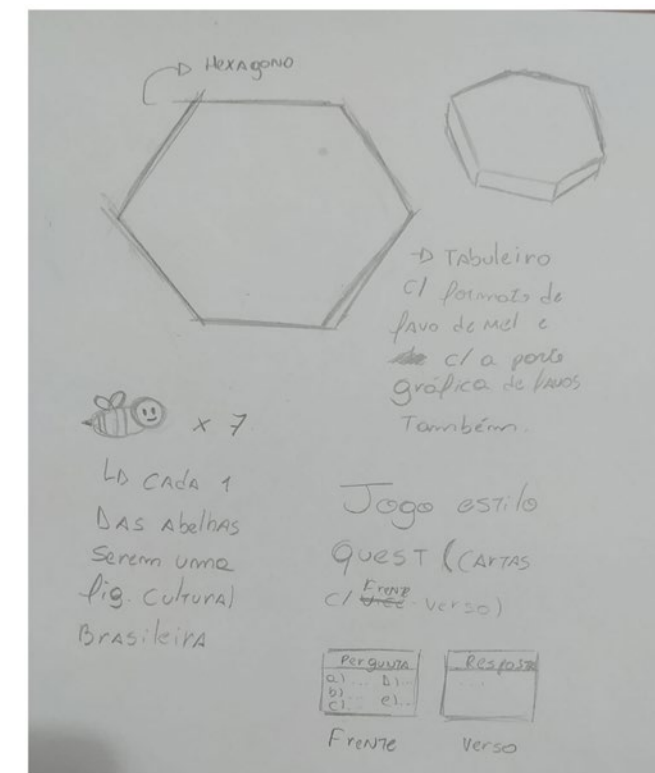 Hexagono
Tabuleiro
c/ formato de
favo de mel e
c/ a parte
gráfica de favos
Também.
x 7
cada 1
Das Abelhas
serem uma
fig. cultural
Brasileira
Jogo estilo
Quest (cartas
c/ Frente verso)
Pergunta
a)... D)...
b)
c)... e)...
Frente
Resposta
...
verso